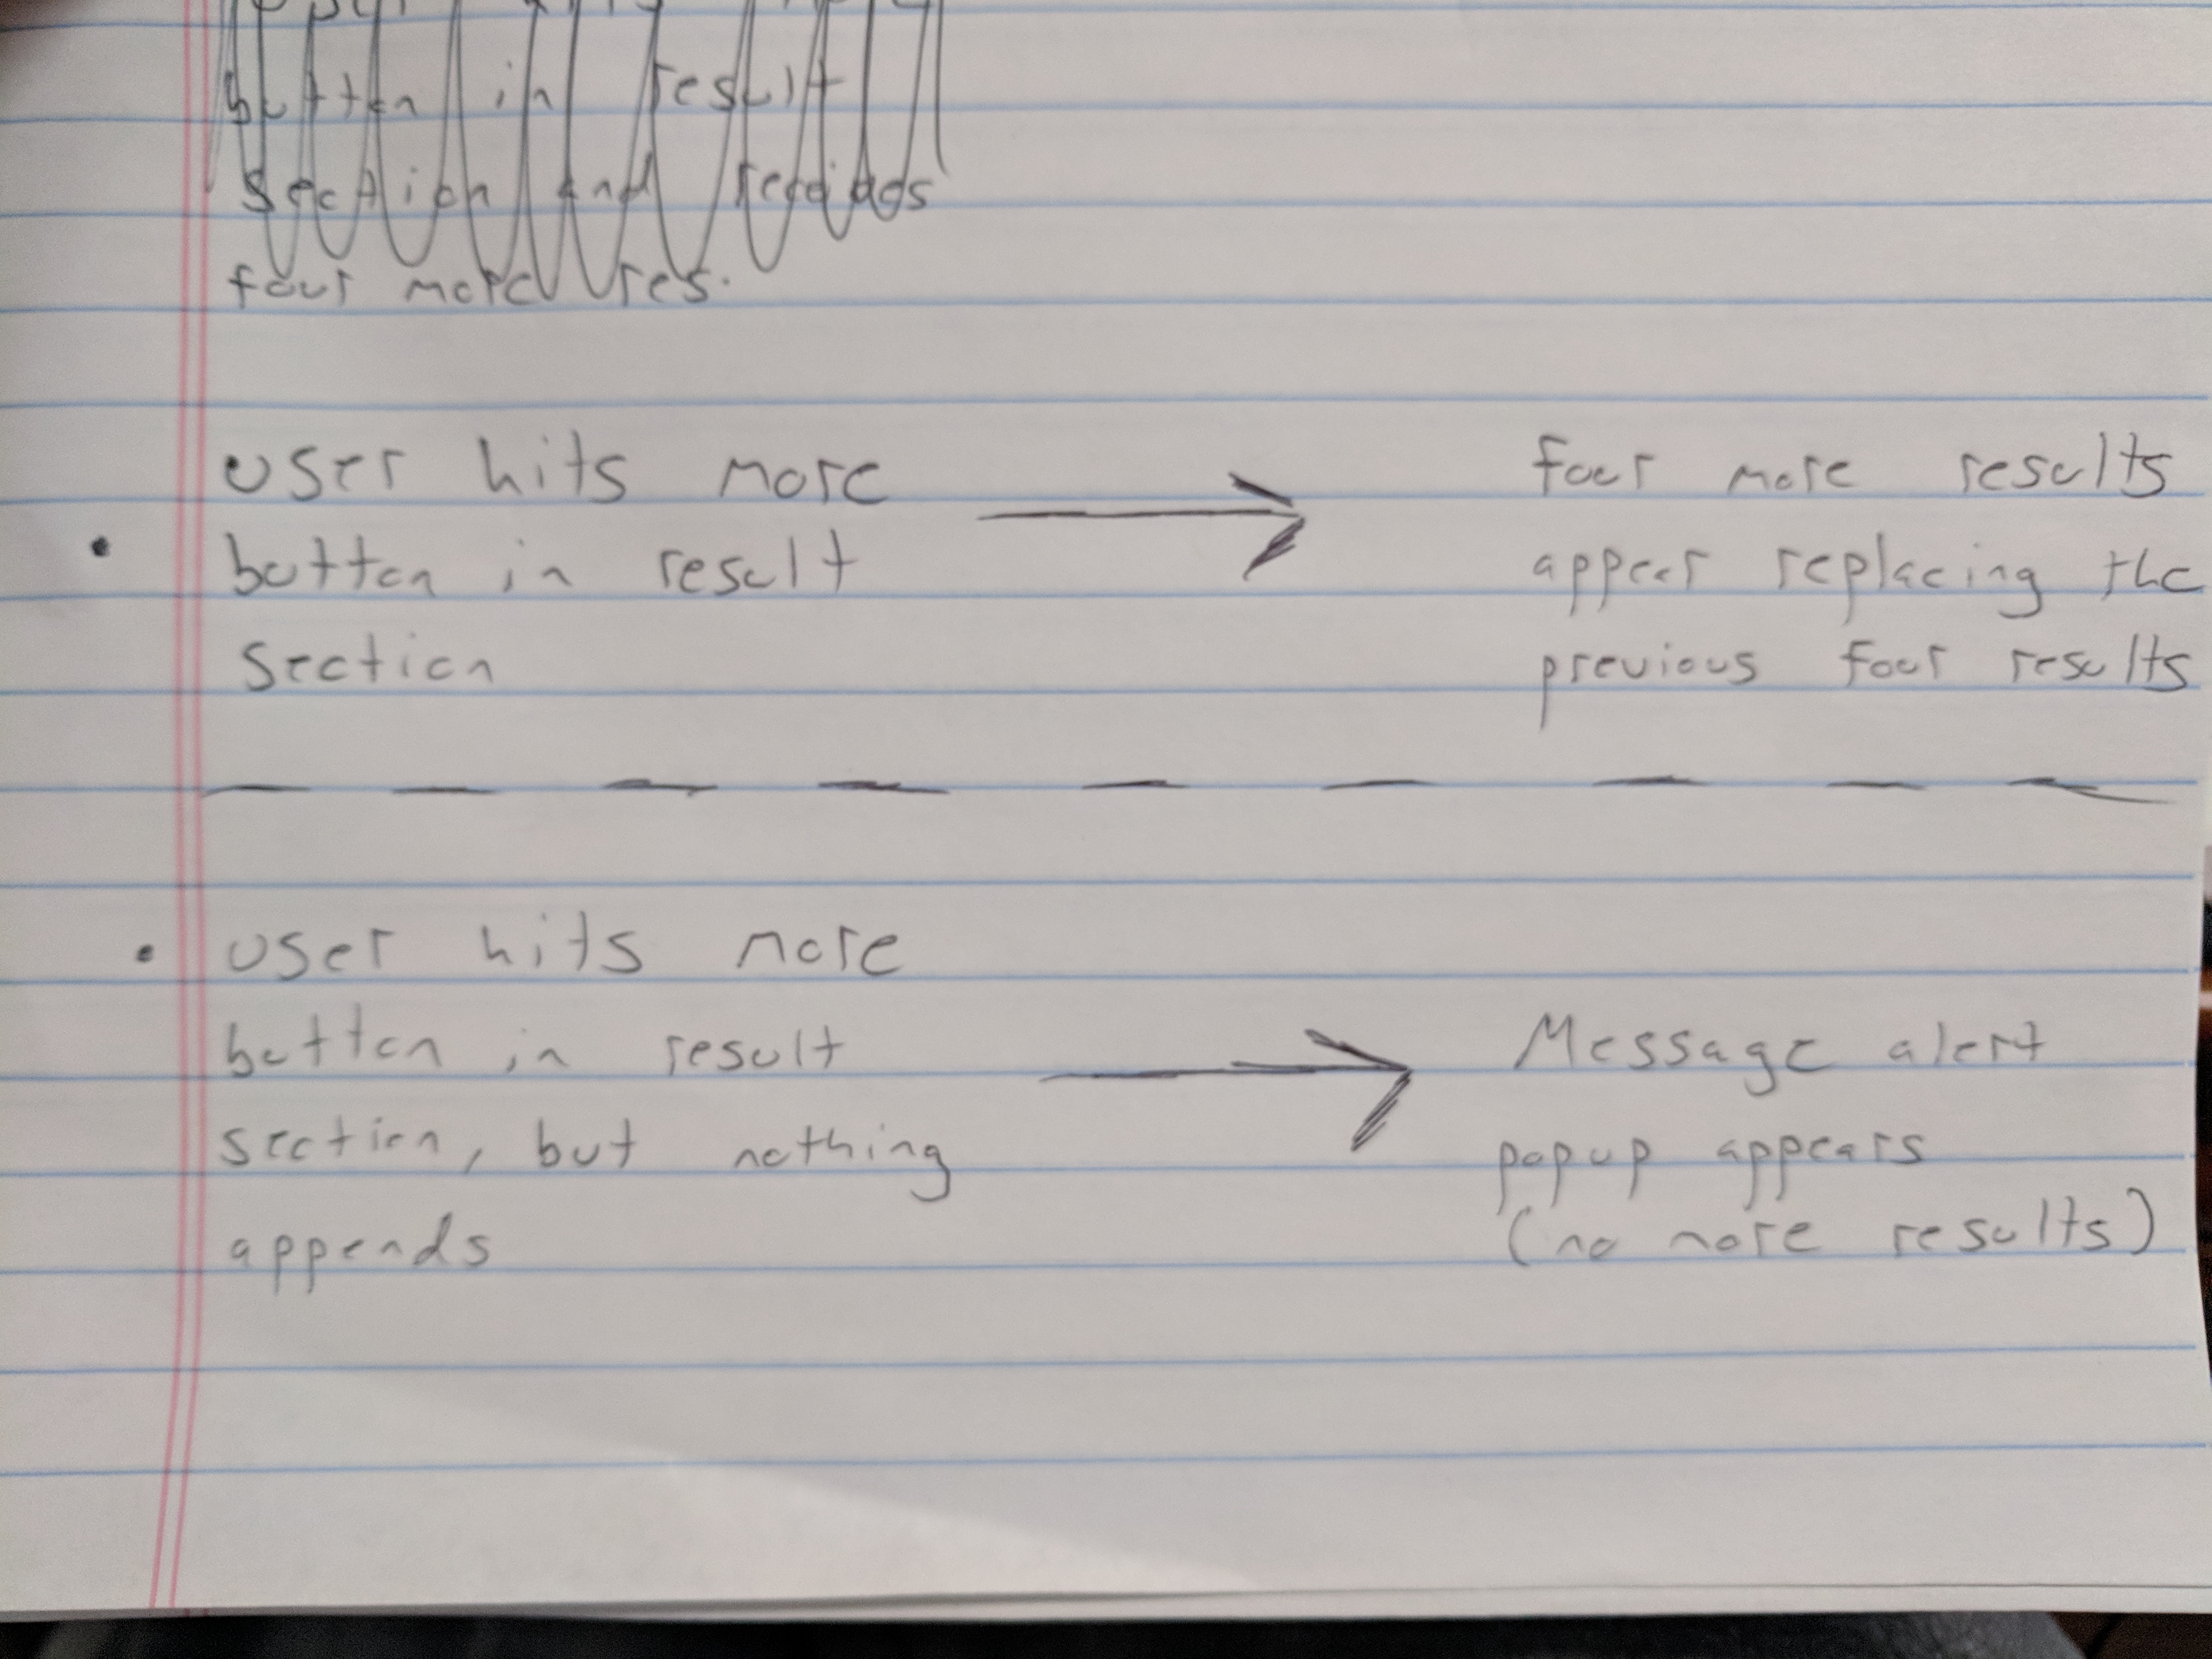 button in result
section and
four more res.
user hits more
button in result
section
four more results
appear replacing the
previous four results
user hits more
button in result
section, but nothing
appends
Message alert
popup appears
(no more results)